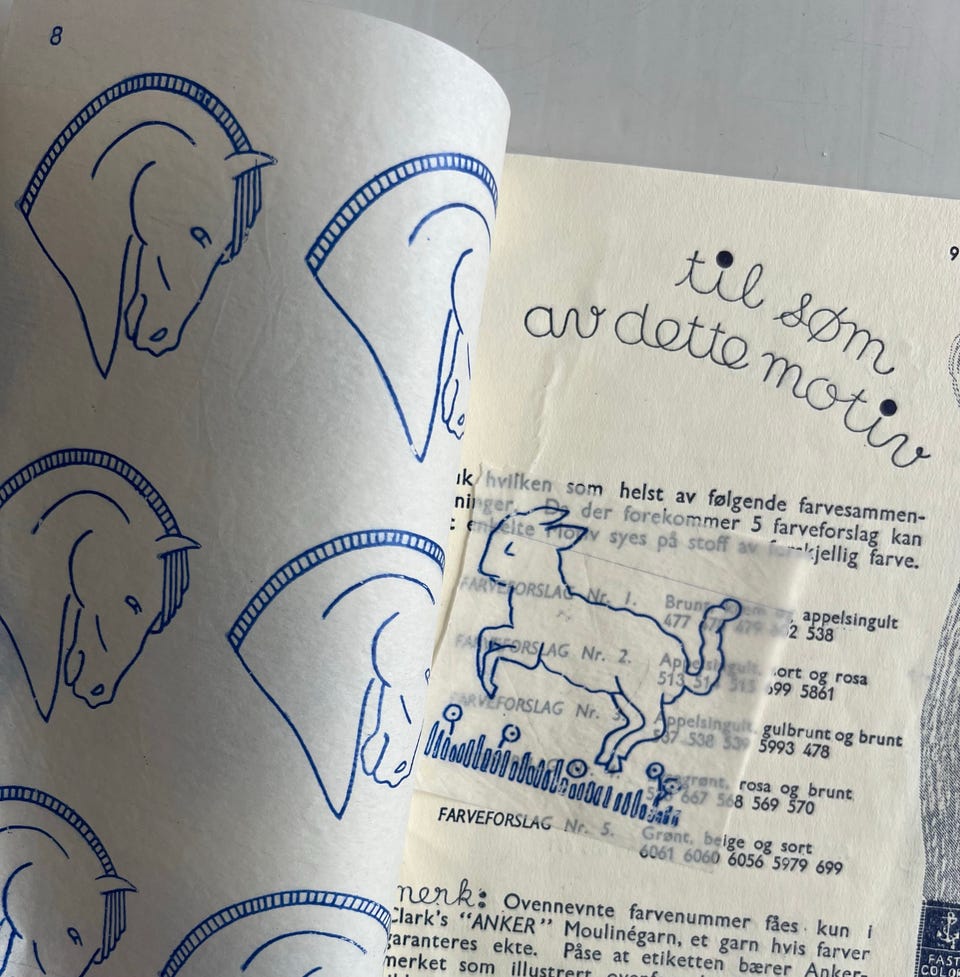 8
9
til søm
av dette motiv
hvilken som helst av følgende farvesammen-
der forekommer 5 farveforslag kan
enkelte Motiv syes på stoff av forskjellig farve.
FARVEFORSLAG Nr. 1. appelsingult
477 538
FARVEFORSLAG Nr. 2. Appelsingult, sort og rosa
513 514 515 699 5861
FARVEFORSLAG Nr. 3. Appelsingult, gulbrunt og brunt
537 538 539 5993 478
rosa og brunt
667 568 569 570
FARVEFORSLAG Nr. 5. Grønt, beige og sort
6061 6060 6056 5979 699
merk: Ovennevnte farvenummer fåes kun i
Clark's "ANKER" Moulinégarn, et garn hvis farver
garanteres ekte. Påse at etiketten bærer Anker-
merket som illustrert
FAST
COLO